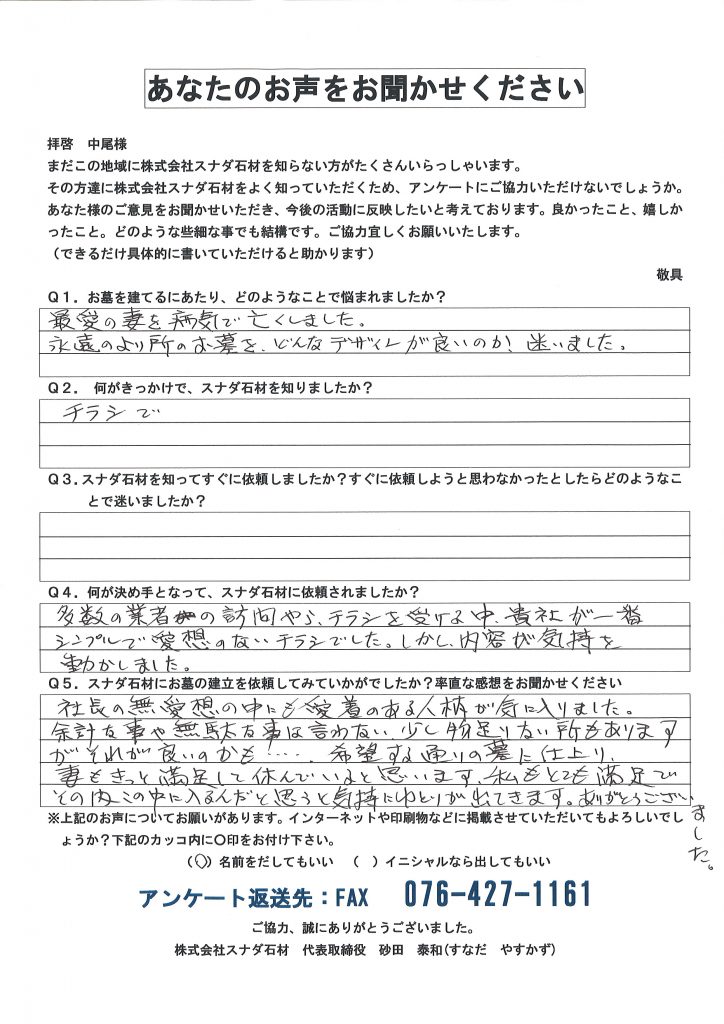 あなたのお声をお聞かせください
拝啓　中尾様
まだこの地域に株式会社スナダ石材を知らない方がたくさんいらっしゃいます。
その方達に株式会社スナダ石材をよく知っていただくため、アンケートにご協力いただけないでしょうか。
あなた様のご意見をお聞かせいただき、今後の活動に反映したいと考えております。良かったこと、嬉しか
ったこと。どのような些細な事でも結構です。ご協力宜しくお願いいたします。
（できるだけ具体的に書いていただけると助かります）
敬具
Ｑ１．お墓を建てるにあたり、どのようなことで悩まれましたか？
最愛の妻を病気で亡くしました。
永遠のより所のお墓を、どんなデザインが良いのか、迷いました。
Ｑ２． 何がきっかけで、スナダ石材を知りましたか？
チラシで
Ｑ３．スナダ石材を知ってすぐに依頼しましたか？すぐに依頼しようと思わなかったとしたらどのようなこ
とで迷いましたか？
Ｑ４．何が決め手となって、スナダ石材に依頼されましたか？
多数の業者の訪問やら、チラシを受ける中、貴社が一番
シンプルで愛想のないチラシでした。しかし、内容が気持を
動かしました。
Ｑ５．スナダ石材にお墓の建立を依頼してみていかがでしたか？率直な感想をお聞かせください
社長の無愛想の中にも愛着のある人柄が気に入りました。
余計な事や無駄な事は言わない、少し物足りない所もあります
がそれが良いのかも……。希望する通りの墓に仕上り、
妻もきっと満足して休んでいると思います。私もとても満足で
その内この中に入るんだと思うと気持にゆとりが出てきます。ありがとうござい
ました。
※上記のお声についてお願いがあります。インターネットや印刷物などに掲載させていただいてもよろしいでし
ょうか？下記のカッコ内に〇印をお付け下さい。
（〇）名前をだしてもいい　（　）イニシャルなら出してもいい
アンケート返送先：FAX　076-427-1161
ご協力、誠にありがとうございました。
株式会社スナダ石材　代表取締役　砂田　泰和(すなだ　やすかず)